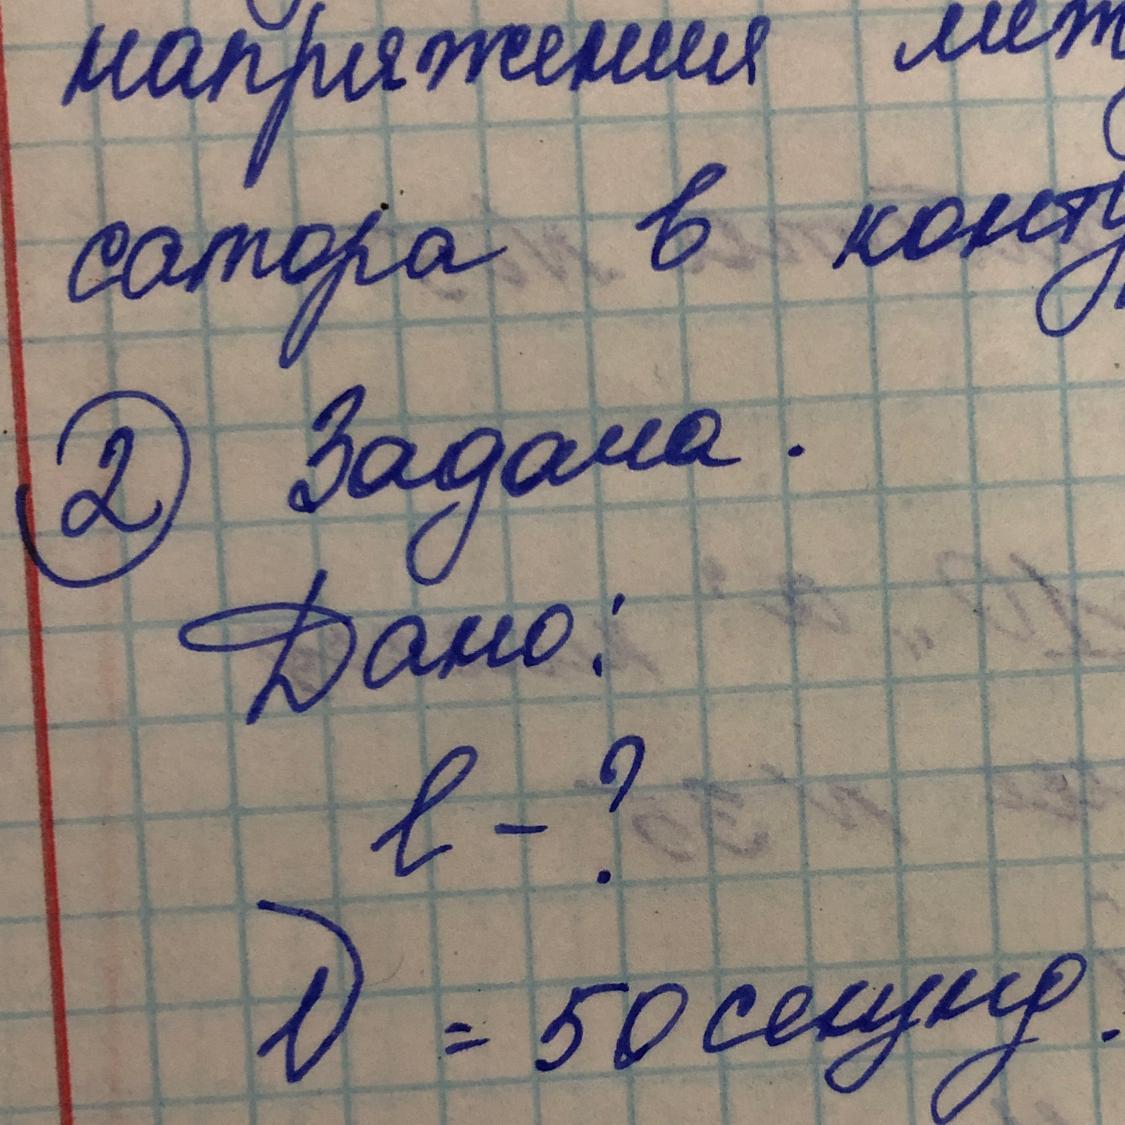 напряжения меж
сатора в конту
2 Задача.
Дано:
l - ?
υ = 50 секунд.